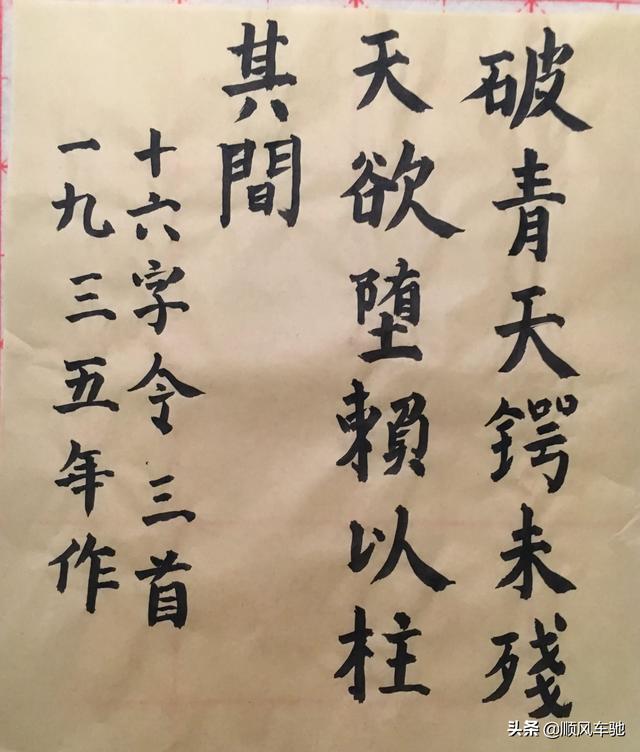 破青天锷未殘
天欲堕賴以柱
其間
十六字令三首
一九三五年作
头条 @顺风车驰